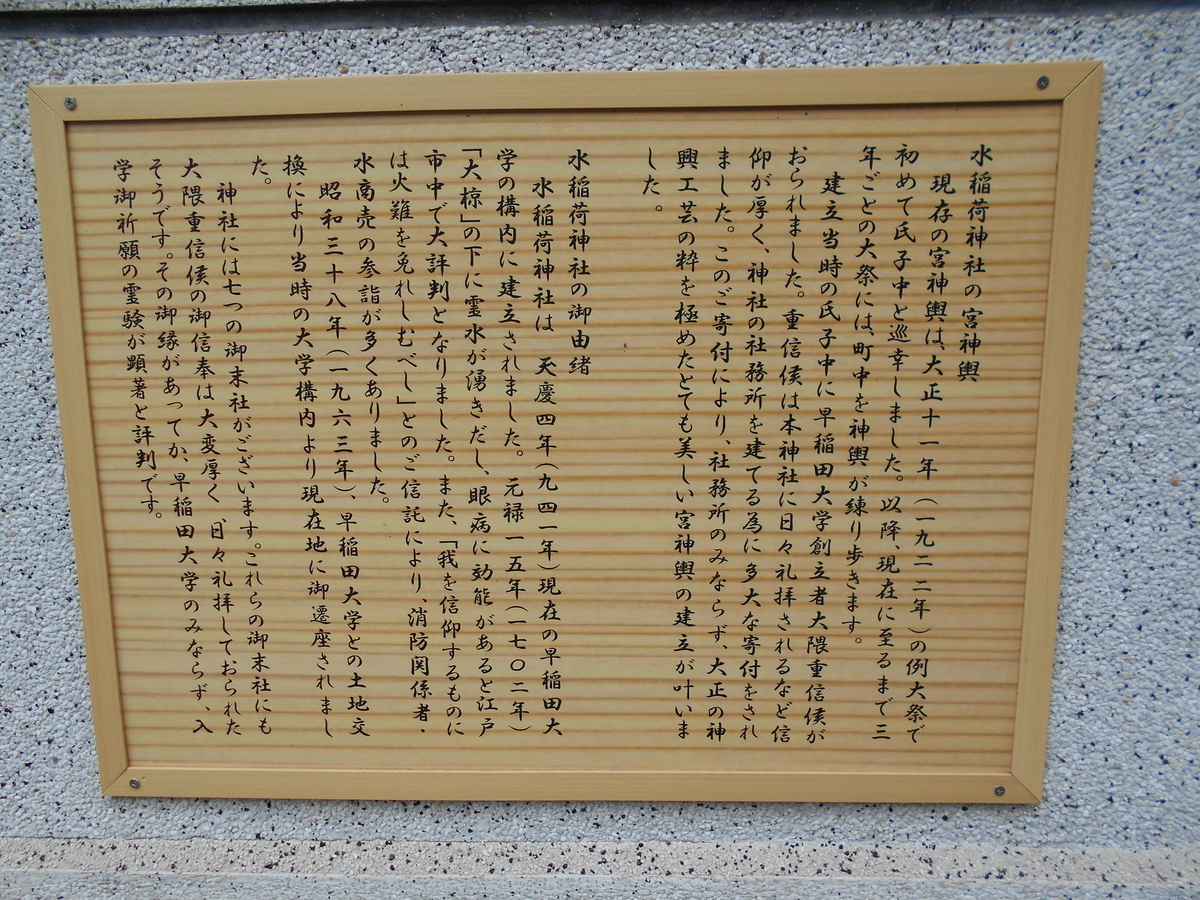 水稲荷神社の宮神輿
現存の宮神輿は、大正十一年（一九二二年）の例大祭で
初めて氏子中と巡幸しました。以降、現在に至るまで三
年ごとの大祭には、町中を神輿が練り歩きます。
建立当時の氏子中に早稲田大学創立者大隈重信侯が
おられました。重信侯は本神社に日々礼拝されるなど信
仰が厚く、神社の社務所を建てる為に多大な寄付をされ
ました。このご寄付により、社務所のみならず、大正の神
輿工芸の粋を極めたとても美しい宮神輿の建立が叶いま
した。
水稲荷神社の御由緒
水稲荷神社は　天慶四年（九四一年）現在の早稲田大
学の構内に建立されました。　元禄一五年（一七〇二年）
「大椋」の下に霊水が湧きだし、眼病に効能があると江戸
市中で大評判となりました。また、「我を信仰するものに
は火難を免れしむべし」とのご信託により、消防関係者、
水商売の参詣が多くありました。
昭和三十八年（一九六三年）、早稲田大学との土地交
換により当時の大学構内より現在地に御遷座されまし
た。
神社には七つの御末社がございます。これらの御末社にも
大隈重信侯の御信奉は大変厚く　日々礼拝しておられた
そうです。その御縁があってか、早稲田大学のみならず、入
学御祈願の霊験が顕著と評判です。